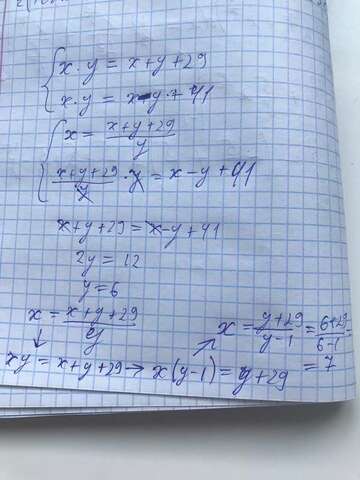 x · y = x + y + 29
x · y = x - y + 41
x = (x + y + 29) / y
(x + y + 29) / y · y = x - y + 41
x + y + 29 = x - y + 41
2y = 12
y = 6
x = (x + y + 29) / y
x = (y + 29) / (y - 1) = (6 + 29) / (6 - 1) = 7
xy = x + y + 29 → x(y - 1) = y + 29